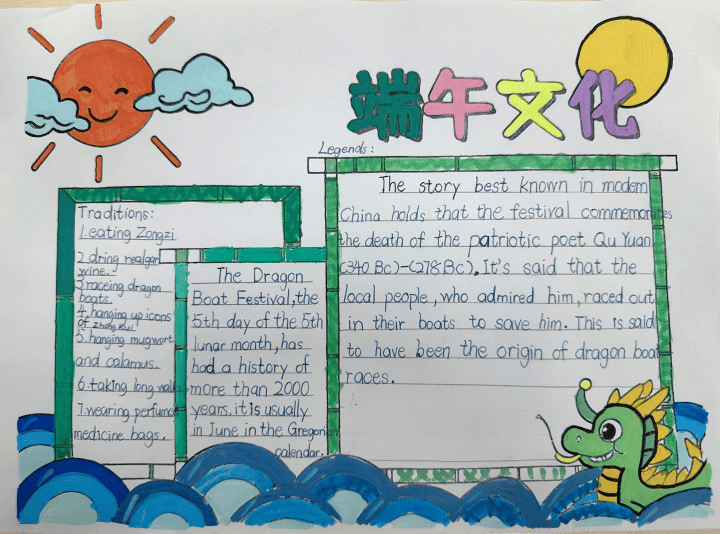 端午文化
Legends:
The story best known in modern
China holds that the festival commemorates
the death of the patriotic poet Qu Yuan
(340 Bc)-(278 Bc). It's said that the
local people, who admired him, raced out
in their boats to save him. This is said
to have been the origin of dragon boat
races.
Traditions:
1.eating Zongzi
2 dring realgar
wine.
3 raceing dragon
boats.
4. hanging up icons
of Zhong Kui
5. hanging mugwort
and calamus.
6. taking long walks
7. wearing perfume
medicine bags.
The Dragon
Boat Festival, the
5th day of the 5th
lunar month, has
had a history of
more than 2000
years. it is usually
in June in the Gregorian
calendar.